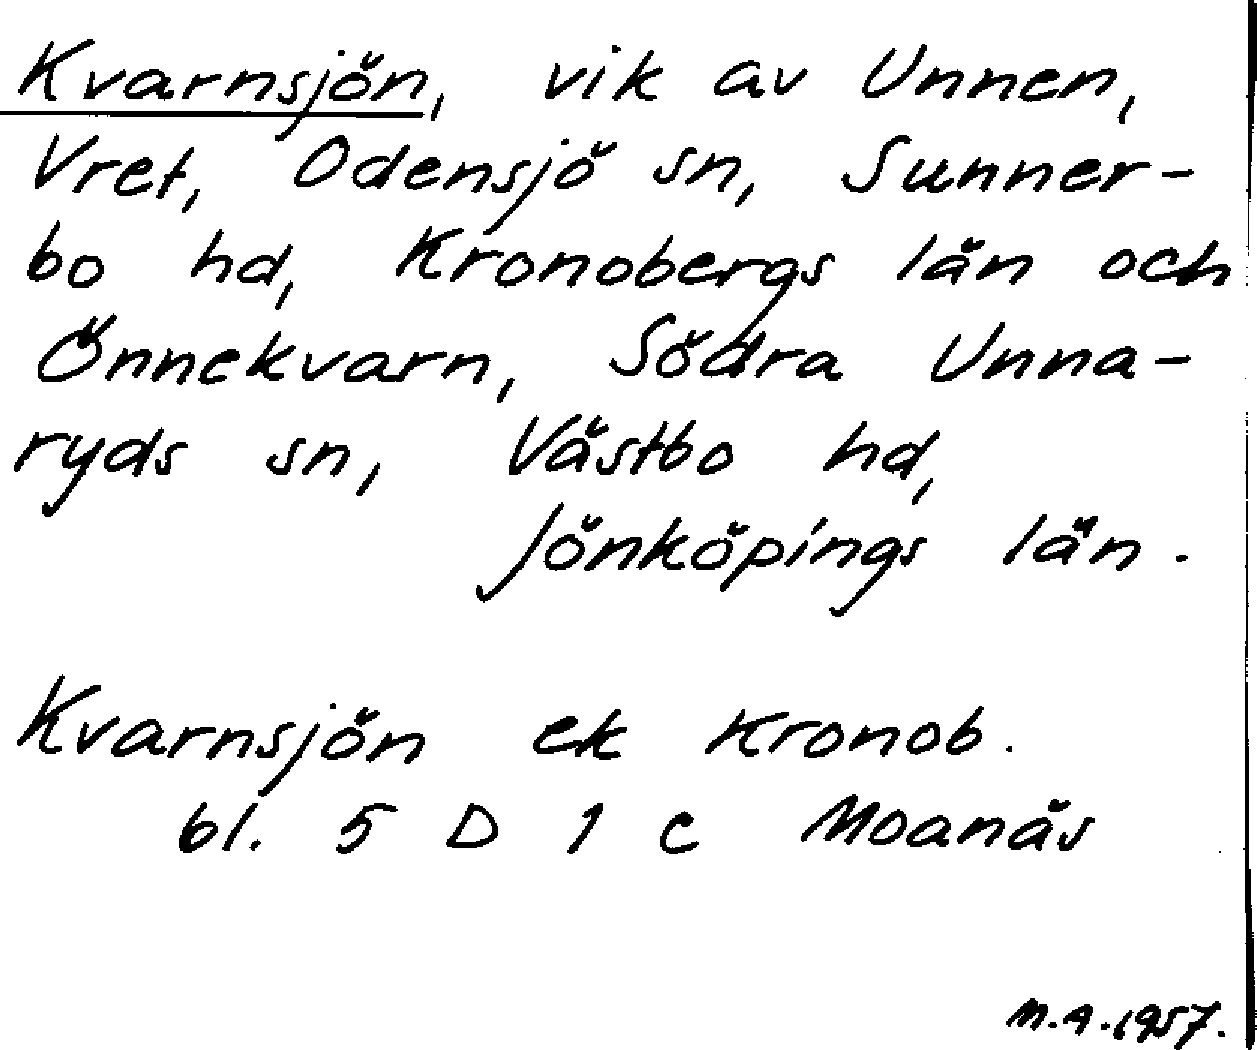 Kvarnsjön, vik av Unnen,
Vret, Odensjö sn, Sunner-
bo hd, Kronobergs län och
Önnekvarn, Södra Unna-
ryds sn, Västbo hd,
Jönköpings län.
Kvarnsjön ek Kronob.
bl. 5 D 1 c Moanäs
M.A. 1957.